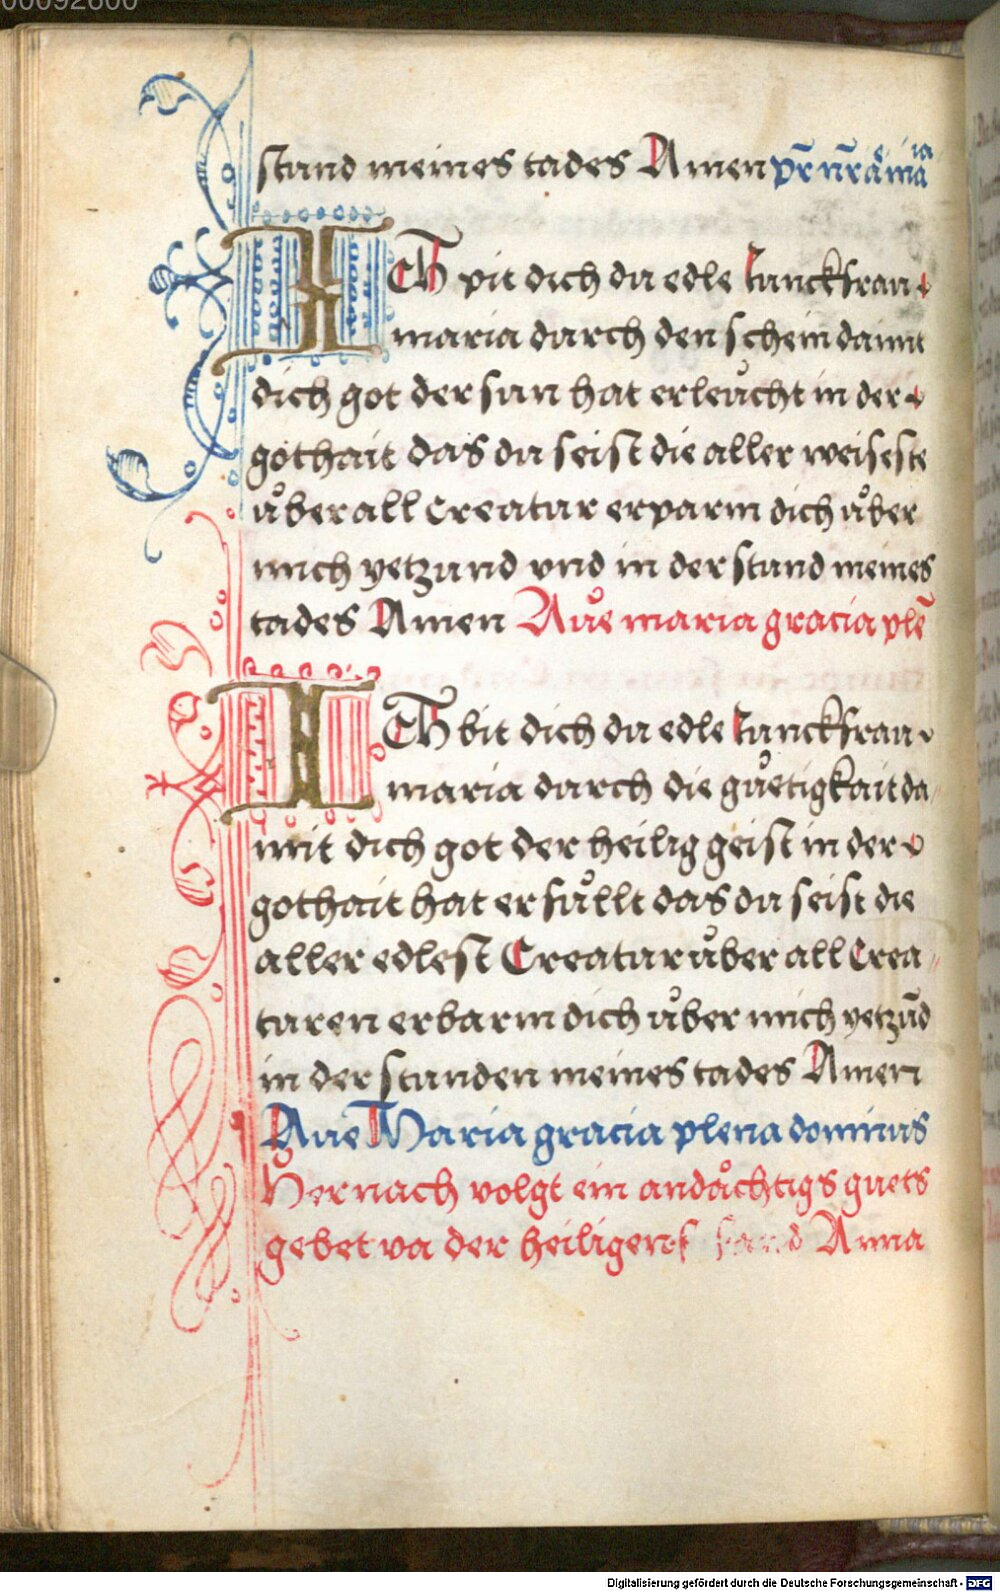 00092600
stund meines todes Amen pr̄ nr̄ a ma
ICh pit dich du edle Junckfrau
maria durch den schein damit
dich got der sun hat erleücht in der
gothait das du seist die aller weiseste
über all Creatur erparm dich über
mich yetzund vnd in der stund meines
todes Amen Aue maria gracia plē
ICh bit dich du edle Junckfrau
maria durch die güetigkait da
mit dich got der heilig geist in der
gothait hat erfüllt das du seist die
aller edlest Creatur über all Crea
turen erbarm dich über mich yetzūd
in der stunden meines todes Amen
Aue Maria gracia plena dominus
Hernach volgt ein andächtigs guets
gebet vō der heiligen sand Anna
Digitalisierung gefördert durch die Deutsche Forschungsgemeinschaft - DFG